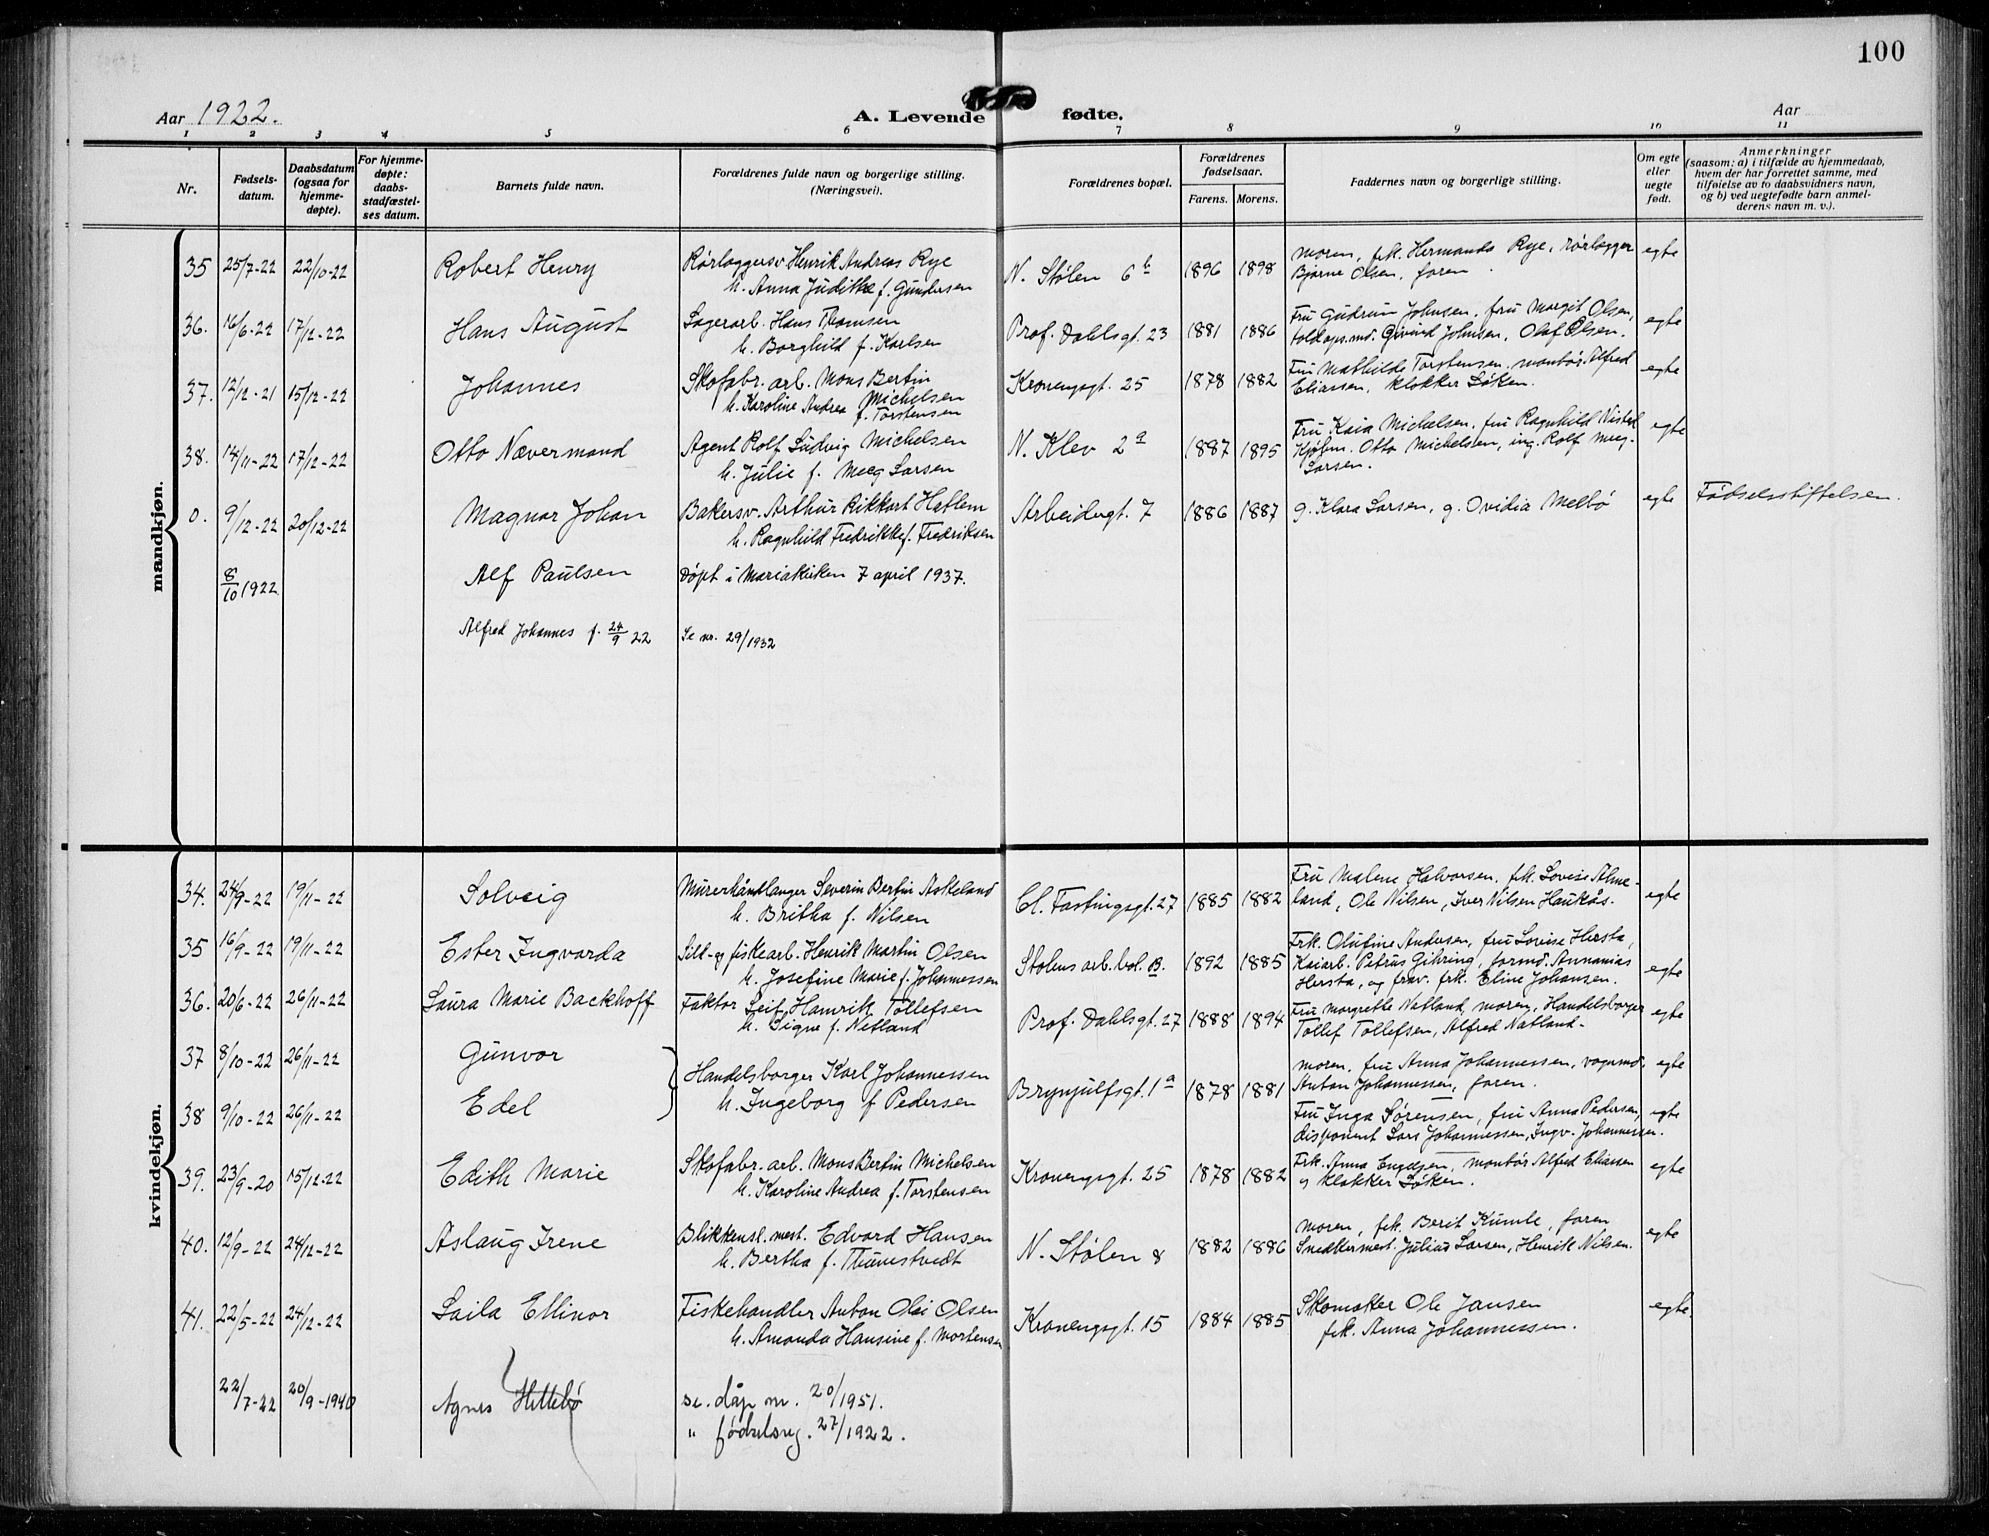 100
Aar 1922.
A. Levende fødte.
Aar
1 2 3 4 5 6 7 8 9 10 11
Nr.
Fødsels-
datum.
Daabsdatum
(ogsaa for
hjemme-
døpte).
For hjemme-
døpte:
daabs-
stadfæstel-
ses datum.
Barnets fulde navn.
Forældrenes fulde navn og borgerlige stilling.
(Næringsvei).
Forældrenes bopæl.
Forældrenes
fødselsaar.
Farens. Morens.
Faddernes navn og borgerlige stilling.
Om egte
eller
uegte
født.
Anmerkninger
(saasom: a) i tilfælde av hjemmedaab,
hvem der har forrettet samme, med
tilføielse av to daabsvidners navn,
og b) ved uegtefødte barn anmel-
derens navn m. v.).
mandkjøn.
35 25/7-22 22/10-22 Robert Henry
Rørlæggersv. Henrik Andreas Rye
h. Anna Judithe f. Gundersen
N. Stølen 6b 1896 1898
moren, frk. Hermanda Rye, rørlægger
Bjarne Olsen, faren.
egte
36. 16/6-22 17/12-22 Hans August
Lagerarb. Hans Thomsen
h. Borghild f. Karlsen
Prof. Dahlsgt. 23 1881 1886
Fru Gudrun Johnsen, fru Margit Olsen,
toldops.md. Eivind Johnsen, Olaf Olsen.
egte
37. 12/12-21 15/12-22 Johannes
Skofabr. arb. Mons Bertin
Michelsen
h. Karoline Andrea f. Torstensen
Kronengsgt. 25 1878 1882
Fru Mathilde Torstensen, montør Alfred
Eliassen, klokker Løken.
egte
38. 14/11-22 17/12-22 Otto Nævermand
Agent Rolf Ludvig Michelsen
h. Julie f. Meeg Larsen
N. Klev 2a 1887 1895
Fru Kaia Michelsen, fru Ragnhild
Kjøbm. Otto Michelsen, ing. Rolf Meeg-
Larsen.
egte
0. 9/12-22 20/12-22 Magnar Johan
Bakersv. Arthur Rikkart Hatlem
h. Ragnhild Fredrikke f. Fredriksen
Arbeidergt. 7 1886 1887
g. Klara Larsen, g. Ovidia Melbø
egte Fødselsstiftelsen.
8/10 1922 Alf Paulsen Døpt i Mariakirken 7 april 1937.
Alfred Johannes f. 24/9 22 Se nr. 29/1932
kvindekjøn.
34. 24/9-22 19/11-22 Solveig
Murerhåndlanger Severin Bertin Askeland
h. Britha f. Nilsen
Cl. Fastingsgt. 27 1885 1882
Fru Malene Halvorsen, frk. Lovise Alme-
land, Ole Nilsen, Iver Nilsen Haukås.
egte
35 16/9-22 19/11-22 Ester Ingvarda
Sild- og fiskearb. Henrik Martin Olsen
h. Josefine Marie f. Johannessen
Stølens arb. bol. B. 1892 1885
Frk. Olufine Andersen, fru Lovise Hersta,
Kaiarb. Petrus Gihring, formd. Annanias
Hersta, og frav. frk. Eline Johansen.
egte
36. 20/6-22 26/11-22 Laura Marie Backhoff
Faktor Leif Hamrik Tollefsen
h. Signe f. Netland
Prof. Dahlsgt. 27 1888 1894
Fru Margrethe Netland, moren, Handelsborger
Tollef Tollefsen, Alfred Natland.
egte
37 8/10-22 26/11-22 Gunvor
Handelsborger Karl Johannessen
h. Ingeborg f. Pedersen
Brynjulfsgt. 1a 1878 1881
moren, fru Anna Johannessen, vognmd.
Anton Johannessen, faren.
egte
38 9/10-22 26/11-22 Edel
Fru Inga Sørensen, fru Anna Pedersen,
disponent Lars Johannessen, Ingv. Johannessen.
egte
39. 23/9-20 15/12-22 Edith Marie
Skofabr. arb. Mons Bertin Michelsen
h. Karoline Andrea f. Torstensen
Kronengsgt. 25 1878 1882
Frk. Anna Engesen, montør Alfred Eliassen
og klokker Løken.
egte
40. 12/9-22 24/12-22 Aslaug Irene
Blikkensl. mest. Edvard Hansen
h. Bertha f. Thunestvedt
N. Stølen 8 1882 1886
moren, frk. Berit Kumle, faren
Snedkermest. Julius Larsen, Henrik Nilsen.
egte
41. 22/5-22 24/12-22 Laila Ellinor
Fiskehandler Anton Olai Olsen
h. Amanda Hansine f. Mortensen
Kronengsgt. 15 1884 1885
Skomaker Ole Jansen
frk. Anna Johannessen.
egte
22/7-22 20/9-1940 Agnes Hettebø
se. dåp nr. 20/1951.
" fødselsreg. 27/1922.